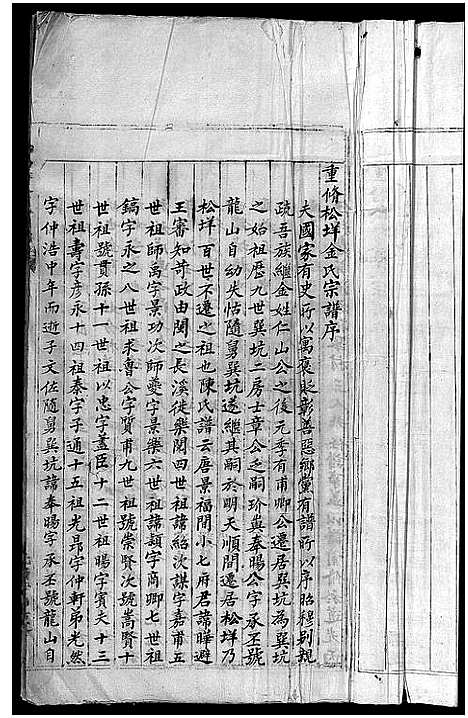 重脩松垟金氏宗譜序
夫國家有史所以寓褒貶彰善惡鄉黨有譜所以序昭穆別親
疏吾族繼金姓仁山公之後元季有甫卿公遷居巽坑為巽坑
之始祖歷九世巽坑二房士章公乏嗣玠奐奉暘公字承丕號
龍山自幼失怙隨舅巽坑遂繼其嗣於明天順間遷居松垟乃
松垟百世不遷之祖也陳氏譜云唐景福間小七府君諱曄避
王審知苛政由閩之長溪徙樂閣四世祖諱紹次謀字嘉甫五
世祖師禹字景功次師夔字景樂六世祖諱頴字商卿七世祖
鎬字永之八世祖求魯公字賢甫九世祖號崇賢次號嵩賢十
世祖號貫孫十一世祖以忠字藎臣十二世祖暘字賓天十三
世祖壽字彥永十四祖泰字子通十五祖光昂字仲軒弟光然
字仲浩中年而逝子文佐隨舅巽坑諱奉暘字承丕號龍山自